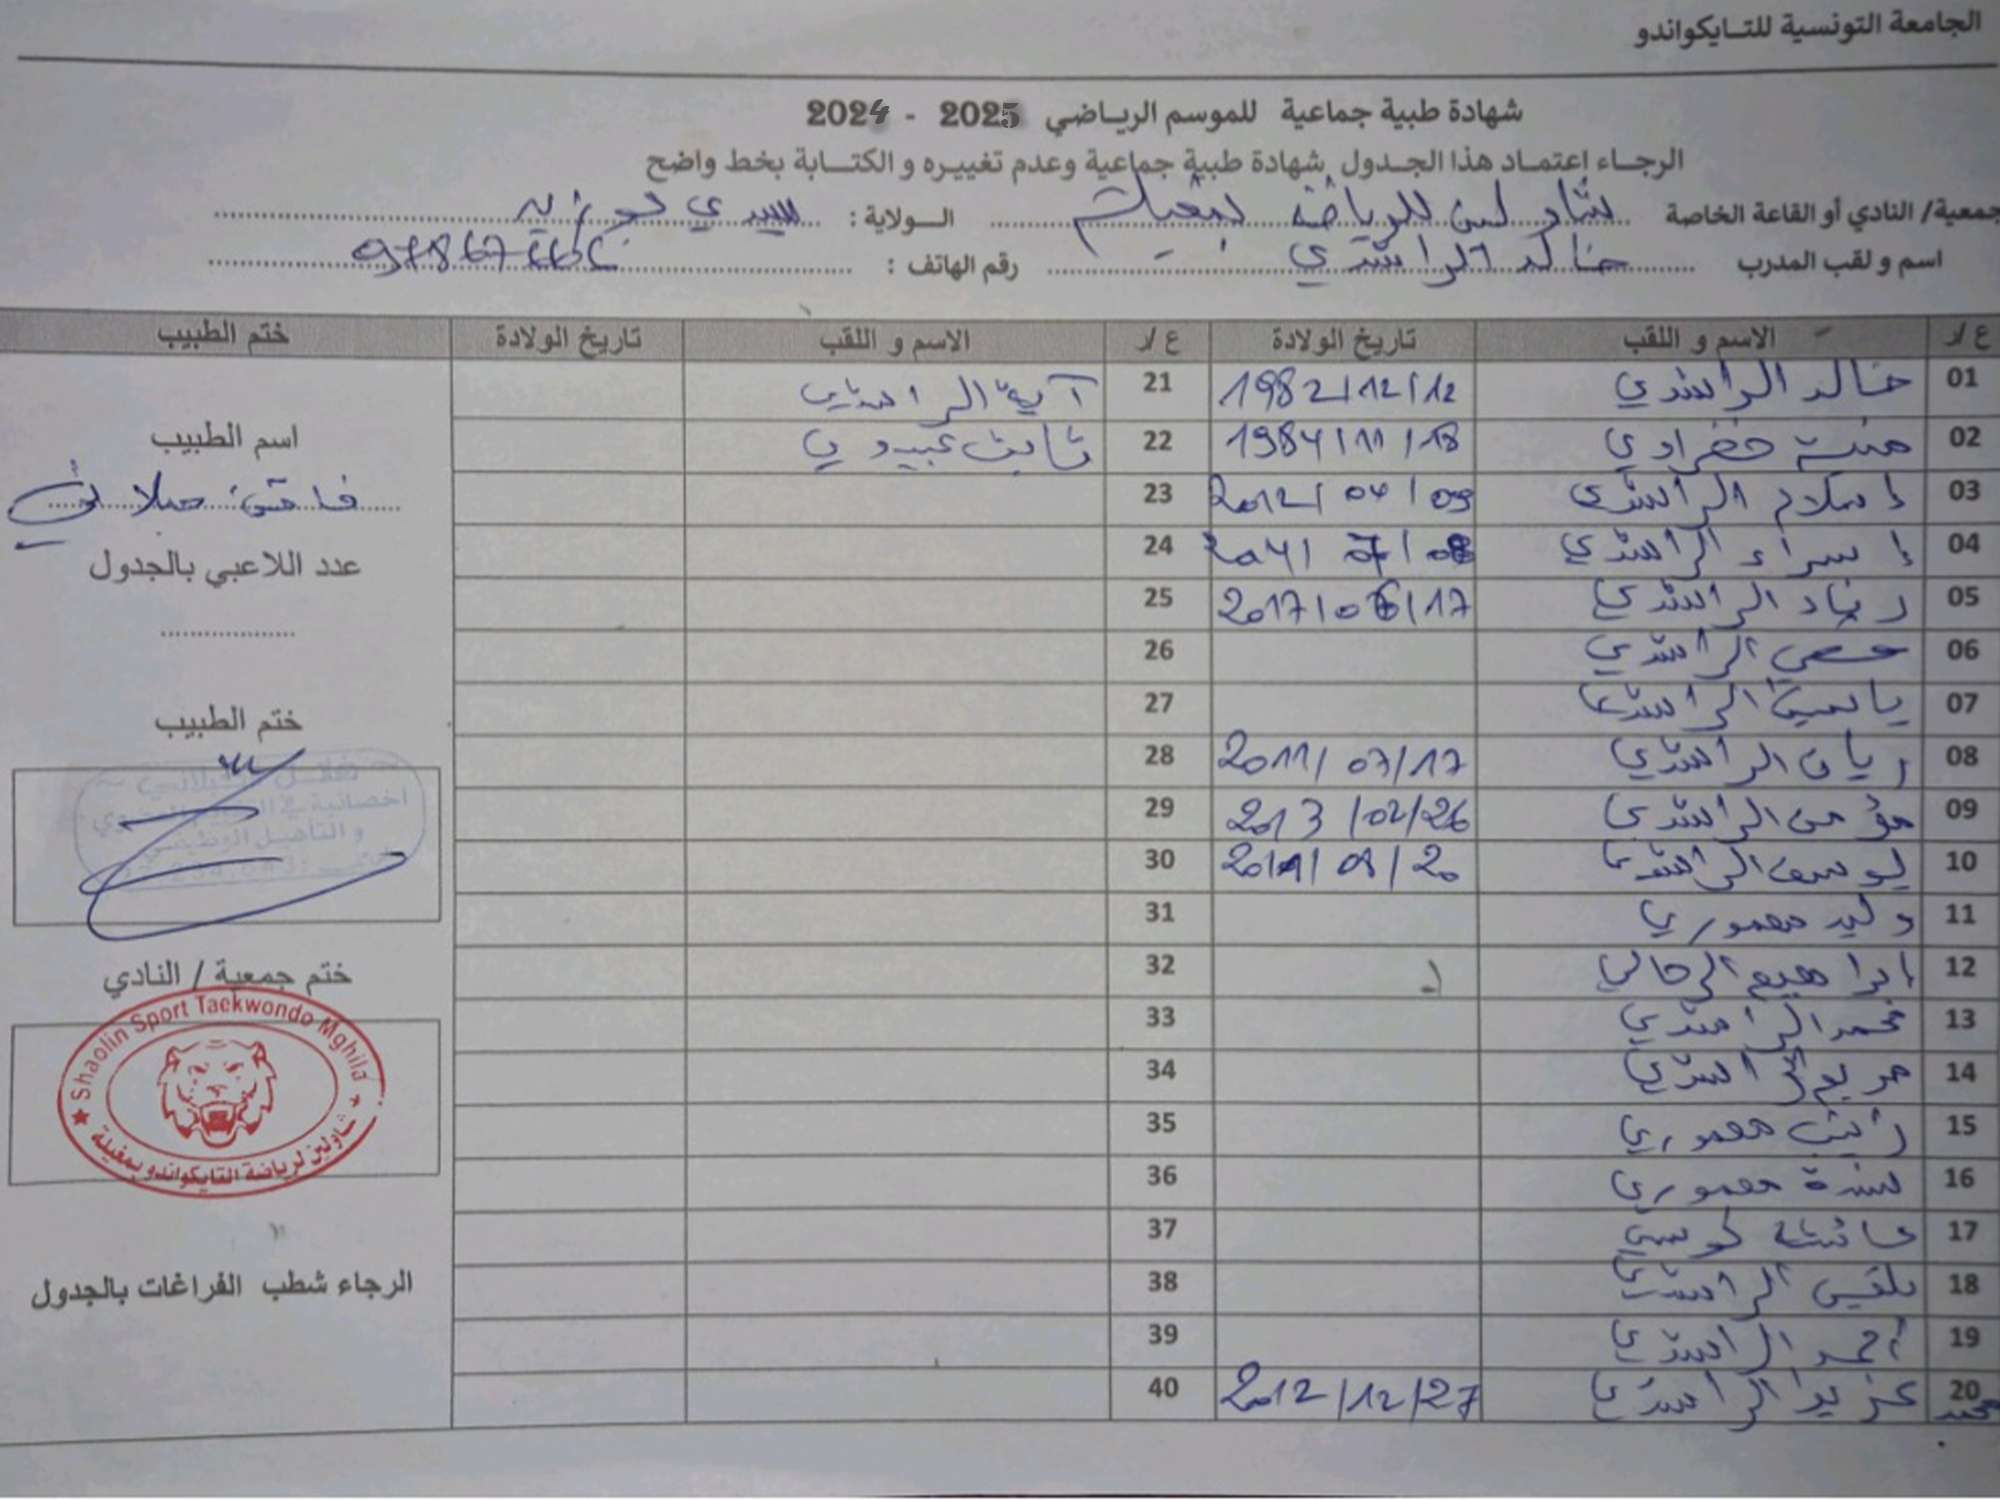 الجامعة التونسية للتايكواندو
شهادة طبية جماعية للموسم الرياضي 2025 - 2024
الرجاء اعتماد هذا الجدول شهادة طبية جماعية وعدم تغييره و الكتابة بخط واضح
جمعية/ النادي أو القاعة الخاصة شاولين للرياضة بمغيلة الولاية : سيدي بوزيد
اسم و لقب المدرب خالد الراشدي رقم الهاتف :
ع/ر الاسم و اللقب تاريخ الولادة ع/ر الاسم و اللقب تاريخ الولادة ختم الطبيب
01 خالد الراشدي 1982/12/12 21 آية الراشدي
02 خضراوي 1984/11/18 22 ثابت عبيدي
03 إسلام الراشدي 2012/04/09 23
04 إسراء الراشدي 24
05 الراشدي 25
06 الراشدي 26
07 ياسين الراشدي 27
08 ريان الراشدي 2011/07/17 28
09 مؤمن الراشدي 2013/02/26 29
10 يوسف الراشدي 30
11 وليد معموري 31
12 ابراهيم الرحالي 32
13 محمد الراشدي 33
14 مريم الراشدي 34
15 معموري 35
16 معموري 36
17 عائشة 37
18 بلقيس الراشدي 38
19 أحمد الراشدي 39
20 محمد عزيز الراشدي 2012/12/27 40
اسم الطبيب
عدد اللاعبي بالجدول
ختم الطبيب
والتأهيل الوظيفي
ختم جمعية / النادي
Shaolin Sport Taekwondo Mghila
شاولين لرياضة التايكواندو بمغيلة
الرجاء شطب الفراغات بالجدول